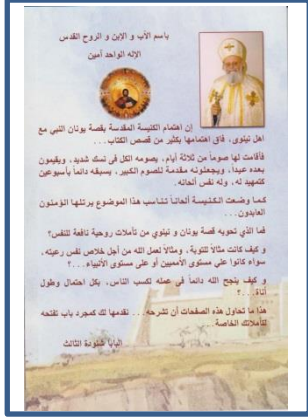 باسم الآب و الإبن و الروح القدس
الإله الواحد آمين
إن اهتمام الكنيسة المقدسة بقصة يونان النبي مع
اهل نينوى، فاق اهتمامها بكثير من قصص الكتاب...
فأقامت لها صوماً من ثلاثة أيام، يصومه الكل في نسك شديد، ويقيمون
بعده عيداً، ويجعلونه مقدمة للصوم الكبير، يسبقه دائماً بأسبوعين
كتمهيد له، وله نفس ألحانه.
كما وضعت الكنيسة ألحاناً تناسب هذا الموضوع يرتلها المؤمنون
العابدون...
فما الذي تحويه قصة يونان و نينوي من تأملات روحية نافعة للنفس؟
و كيف كانت مثالاً للتوبة، ومثالاً لعمل الله من أجل خلاص نفس رعيته،
سواء كانوا علي مستوي الأمميين أو علي مستوي الأنبياء...؟
و كيف ينجح الله دائماً في عمله لكسب الناس، بكل احتمال وطول
أناة...؟
هذا ما تحاول هذه الصفحات أن تشرحه... نقدمها لك كمجرد باب تفتحه
لتأملاتك الخاصة...
البابا شنودة الثالث